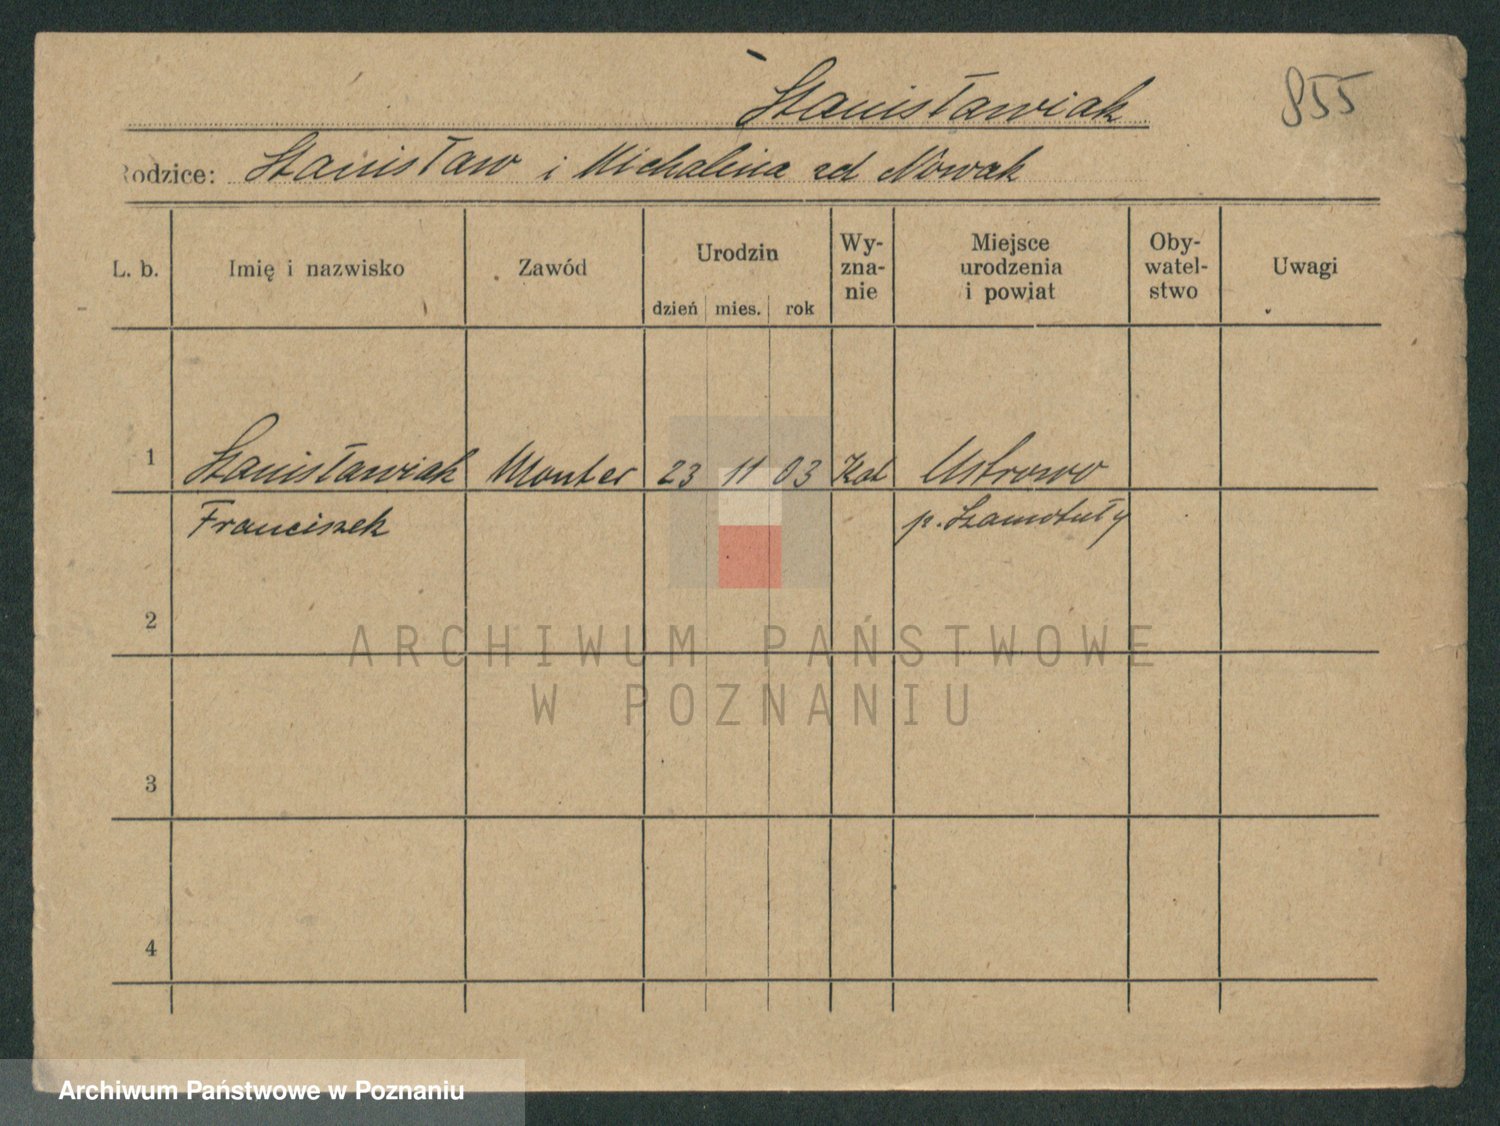 Stanisławiak 855
Rodzice: Stanisław i Michalina zd Nowak
L. b. Imię i nazwisko Zawód Urodzin dzień mies. rok Wy-zna-nie Miejsce urodzenia i powiat Oby-watel-stwo Uwagi
1 Stanisławiak Monter 23 11 03 Kat Ustrowo
Franciszek p. Szamotuły
2
ARCHIWUM PAŃSTWOWE
W POZNANIU
3
4
Archiwum Państwowe w Poznaniu